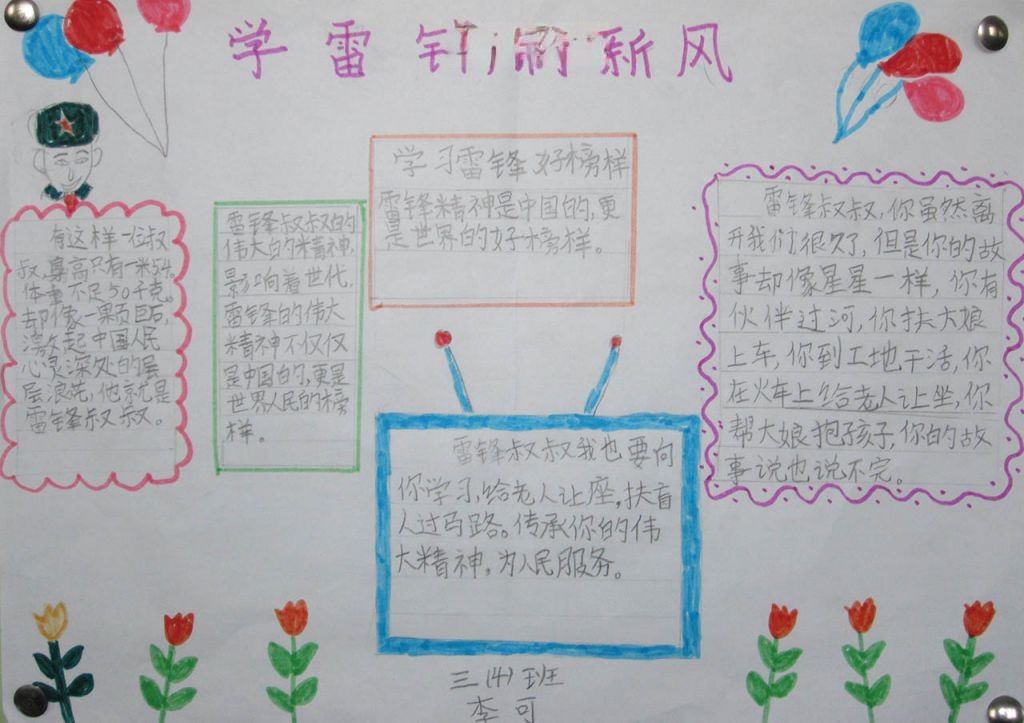 学雷新风
有这样一位叔
叔,身高只有一米54。
体重不足50千克。
却像一
激起中国人民
心灵深处的层
层浪花,他就是
雷锋叔叔。
雷锋叔叔的
伟大的精神,
影响着世代,
雷锋的伟大
精神不仅仅
是中国的,更是
世界人民的榜
样。
学习雷锋好榜样
雷锋精神是中国的,更
是世界的好榜样。
雷锋叔叔我也要向
你学习,给老人让座,扶盲
人过马路。传承你的伟
大精神,为人民服务。
雷锋叔叔,你虽然离
开我们很久了,但是你的故
事却像星星一样,你有
伙伴过河,你扶大娘
上车,你到工地干活,你
在火车上给老人让坐,你
帮大娘抱孩子,你的故
事说也说不完。
三(4)班
李可